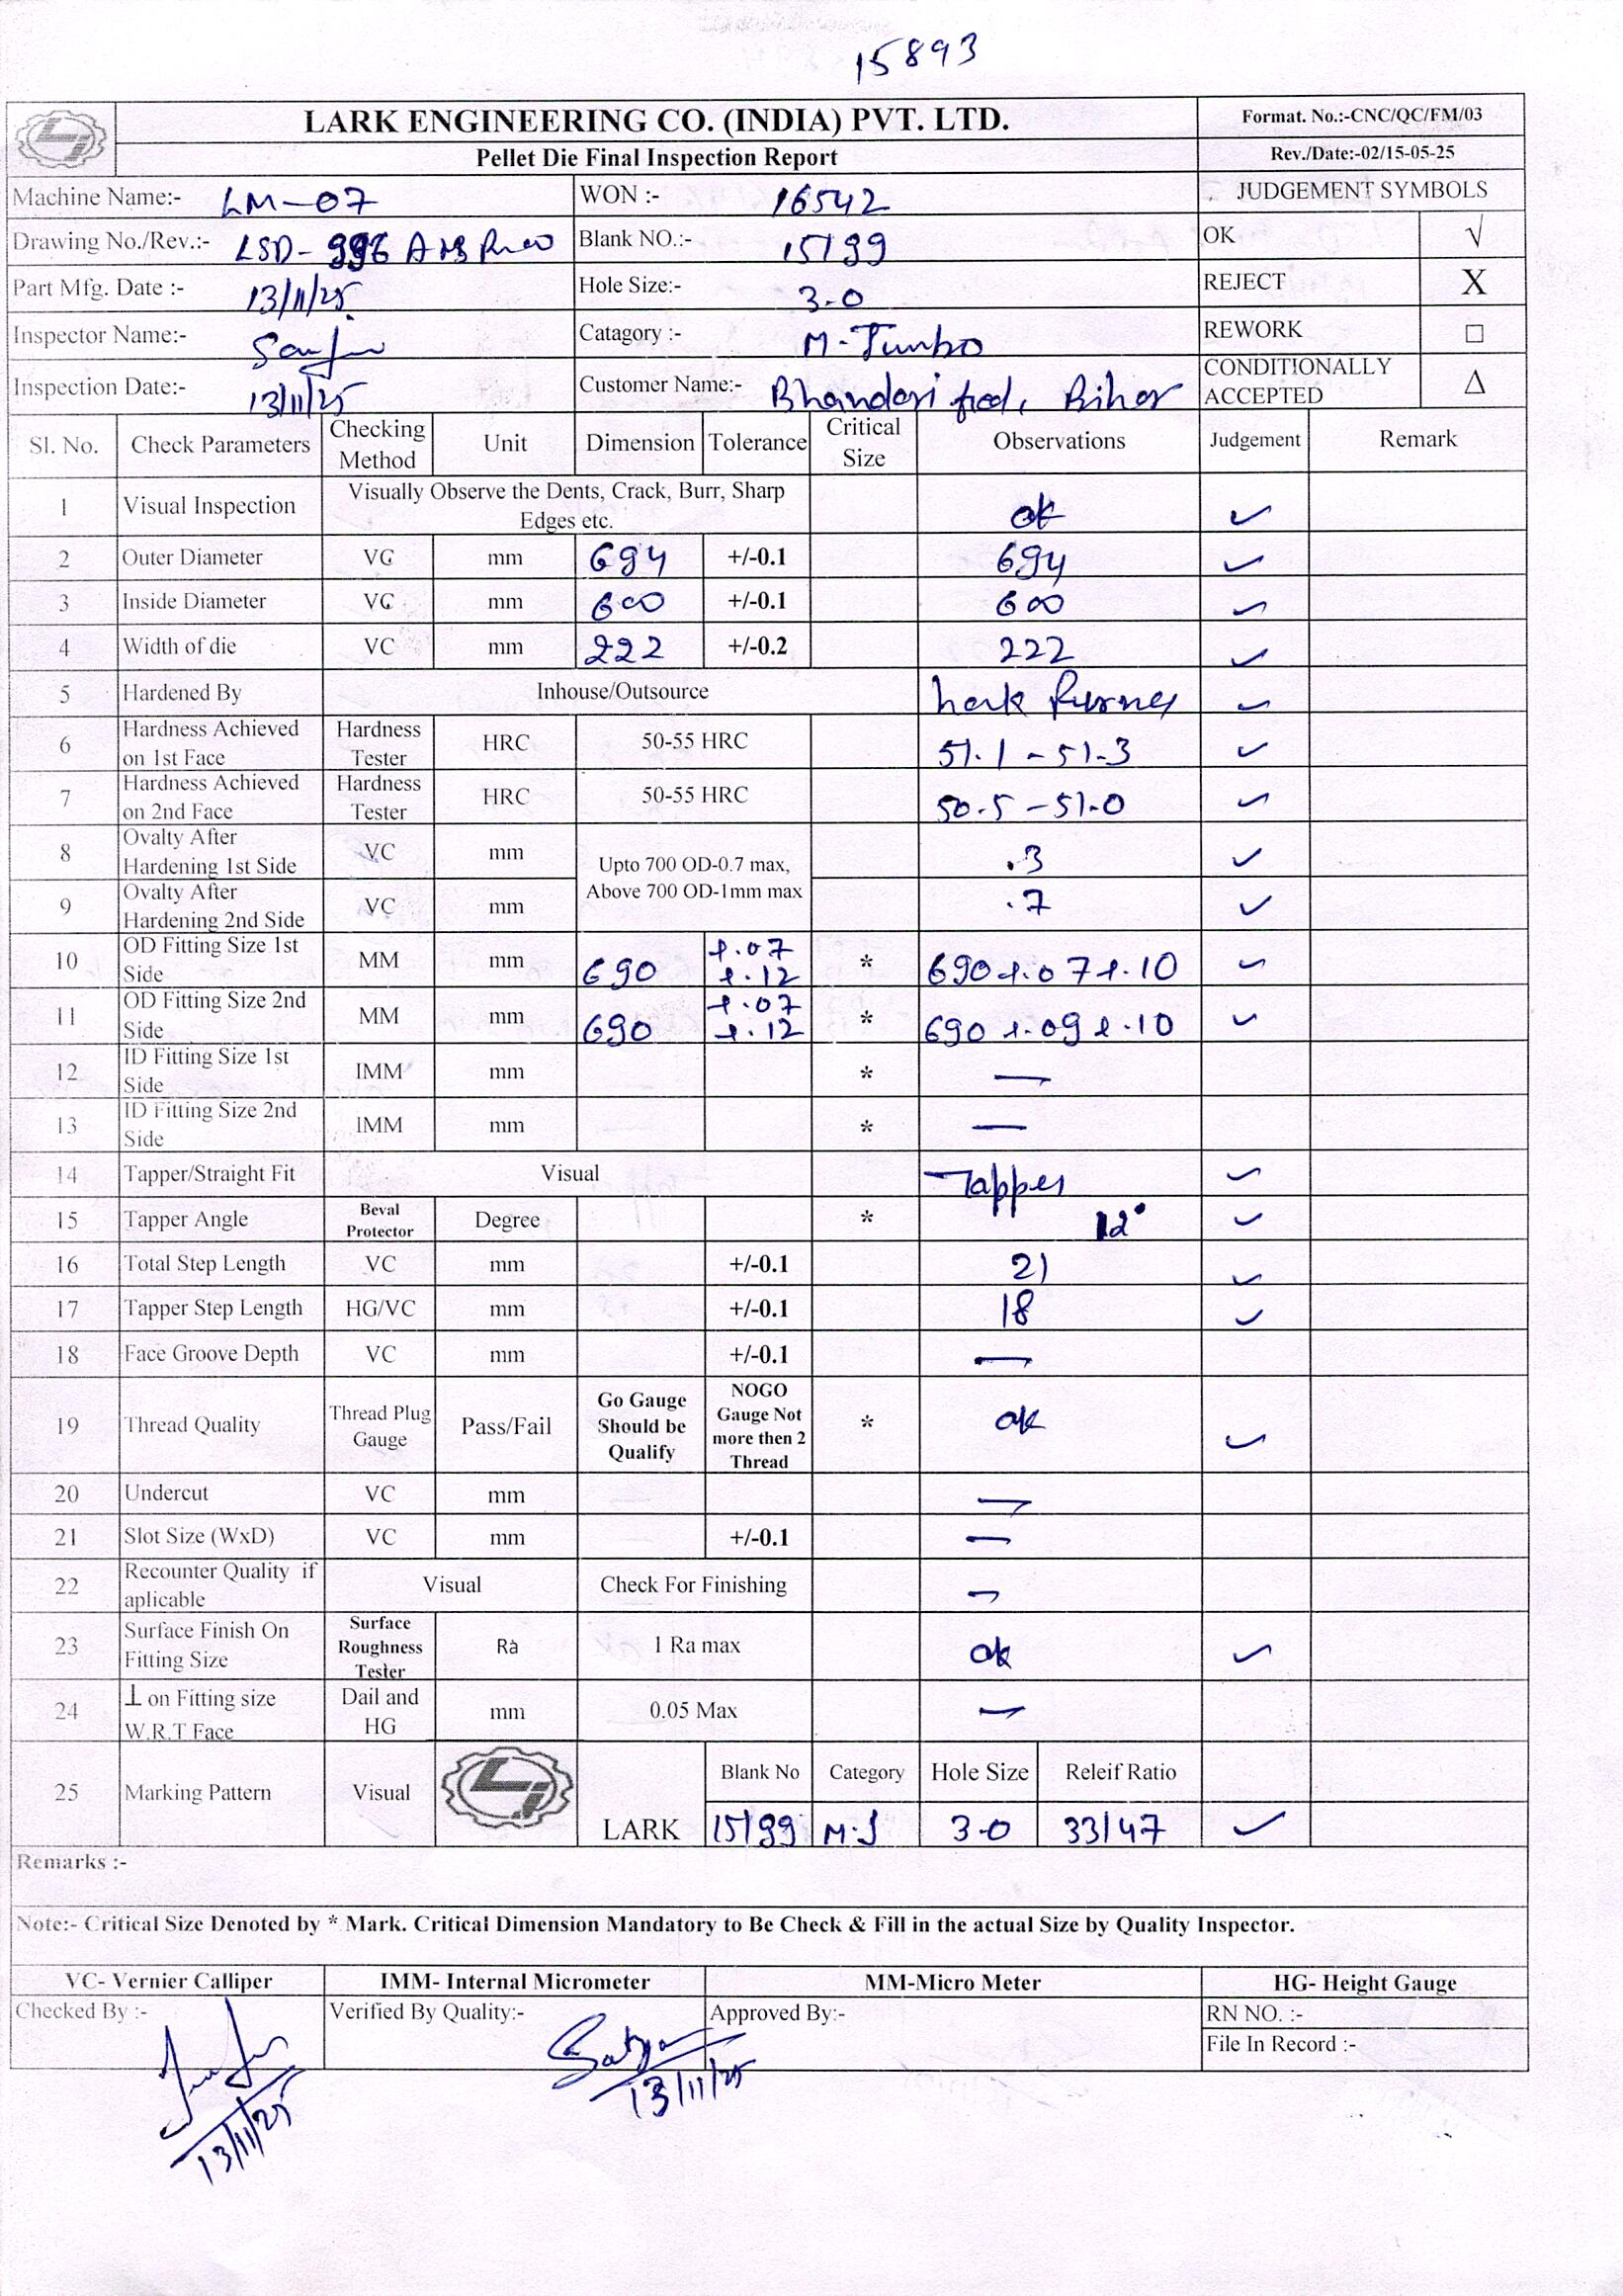 15893
LARK ENGINEERING CO. (INDIA) PVT. LTD.
Format. No.:-CNC/QC/FM/03
Pellet Die Final Inspection Report
Rev./Date:-02/15-05-25
Machine Name:- LM-07 WON :- 16542 JUDGEMENT SYMBOLS
Drawing No./Rev.:- LSD- 996 Blank NO.:- 15199 OK √
Part Mfg. Date :- 13/11/25 Hole Size:- 3.0 REJECT X
Inspector Name:- Catagory :- M-Jumbo REWORK □
Inspection Date:- 13/11/25 Customer Name:- Bhandari feed, Bihar CONDITIONALLY ACCEPTED Δ
Sl. No. Check Parameters Checking Method Unit Dimension Tolerance Critical Size Observations Judgement Remark
1 Visual Inspection Visually Observe the Dents, Crack, Burr, Sharp Edges etc. ok ✓
2 Outer Diameter VC mm 694 +/-0.1 694 ✓
3 Inside Diameter VC mm 600 +/-0.1 600 ✓
4 Width of die VC mm 222 +/-0.2 222 ✓
5 Hardened By Inhouse/Outsource Lark ✓
6 Hardness Achieved on 1st Face Hardness Tester HRC 50-55 HRC 51.1 - 51.3 ✓
7 Hardness Achieved on 2nd Face Hardness Tester HRC 50-55 HRC 50.5 - 51.0 ✓
8 Ovalty After Hardening 1st Side VC mm Upto 700 OD-0.7 max, Above 700 OD-1mm max .3 ✓
9 Ovalty After Hardening 2nd Side VC mm .7 ✓
10 OD Fitting Size 1st Side MM mm 690 +.07 +.12 * 690 +.07 +.10 ✓
11 OD Fitting Size 2nd Side MM mm 690 +.07 +.12 * 690 +.09 +.10 ✓
12 ID Fitting Size 1st Side IMM mm * —
13 ID Fitting Size 2nd Side IMM mm * —
14 Tapper/Straight Fit Visual Tapper ✓
15 Tapper Angle Beval Protector Degree * 12° ✓
16 Total Step Length VC mm +/-0.1 21 ✓
17 Tapper Step Length HG/VC mm +/-0.1 18 ✓
18 Face Groove Depth VC mm +/-0.1 —
19 Thread Quality Thread Plug Gauge Pass/Fail Go Gauge Should be Qualify NOGO Gauge Not more then 2 Thread * ok ✓
20 Undercut VC mm —
21 Slot Size (WxD) VC mm +/-0.1 —
22 Recounter Quality if aplicable Visual Check For Finishing —
23 Surface Finish On Fitting Size Surface Roughness Tester Ra 1 Ra max ok ✓
24 ⊥ on Fitting size W.R.T Face Dail and HG mm 0.05 Max —
25 Marking Pattern Visual LARK Blank No Category Hole Size Releif Ratio
15199 M.J 3.0 33/47 ✓
Remarks :-
Note:- Critical Size Denoted by * Mark. Critical Dimension Mandatory to Be Check & Fill in the actual Size by Quality Inspector.
VC- Vernier Calliper IMM- Internal Micrometer MM-Micro Meter HG- Height Gauge
Checked By :- Verified By Quality:- Approved By:- RN NO. :-
File In Record :-
13/11/25
13/11/25